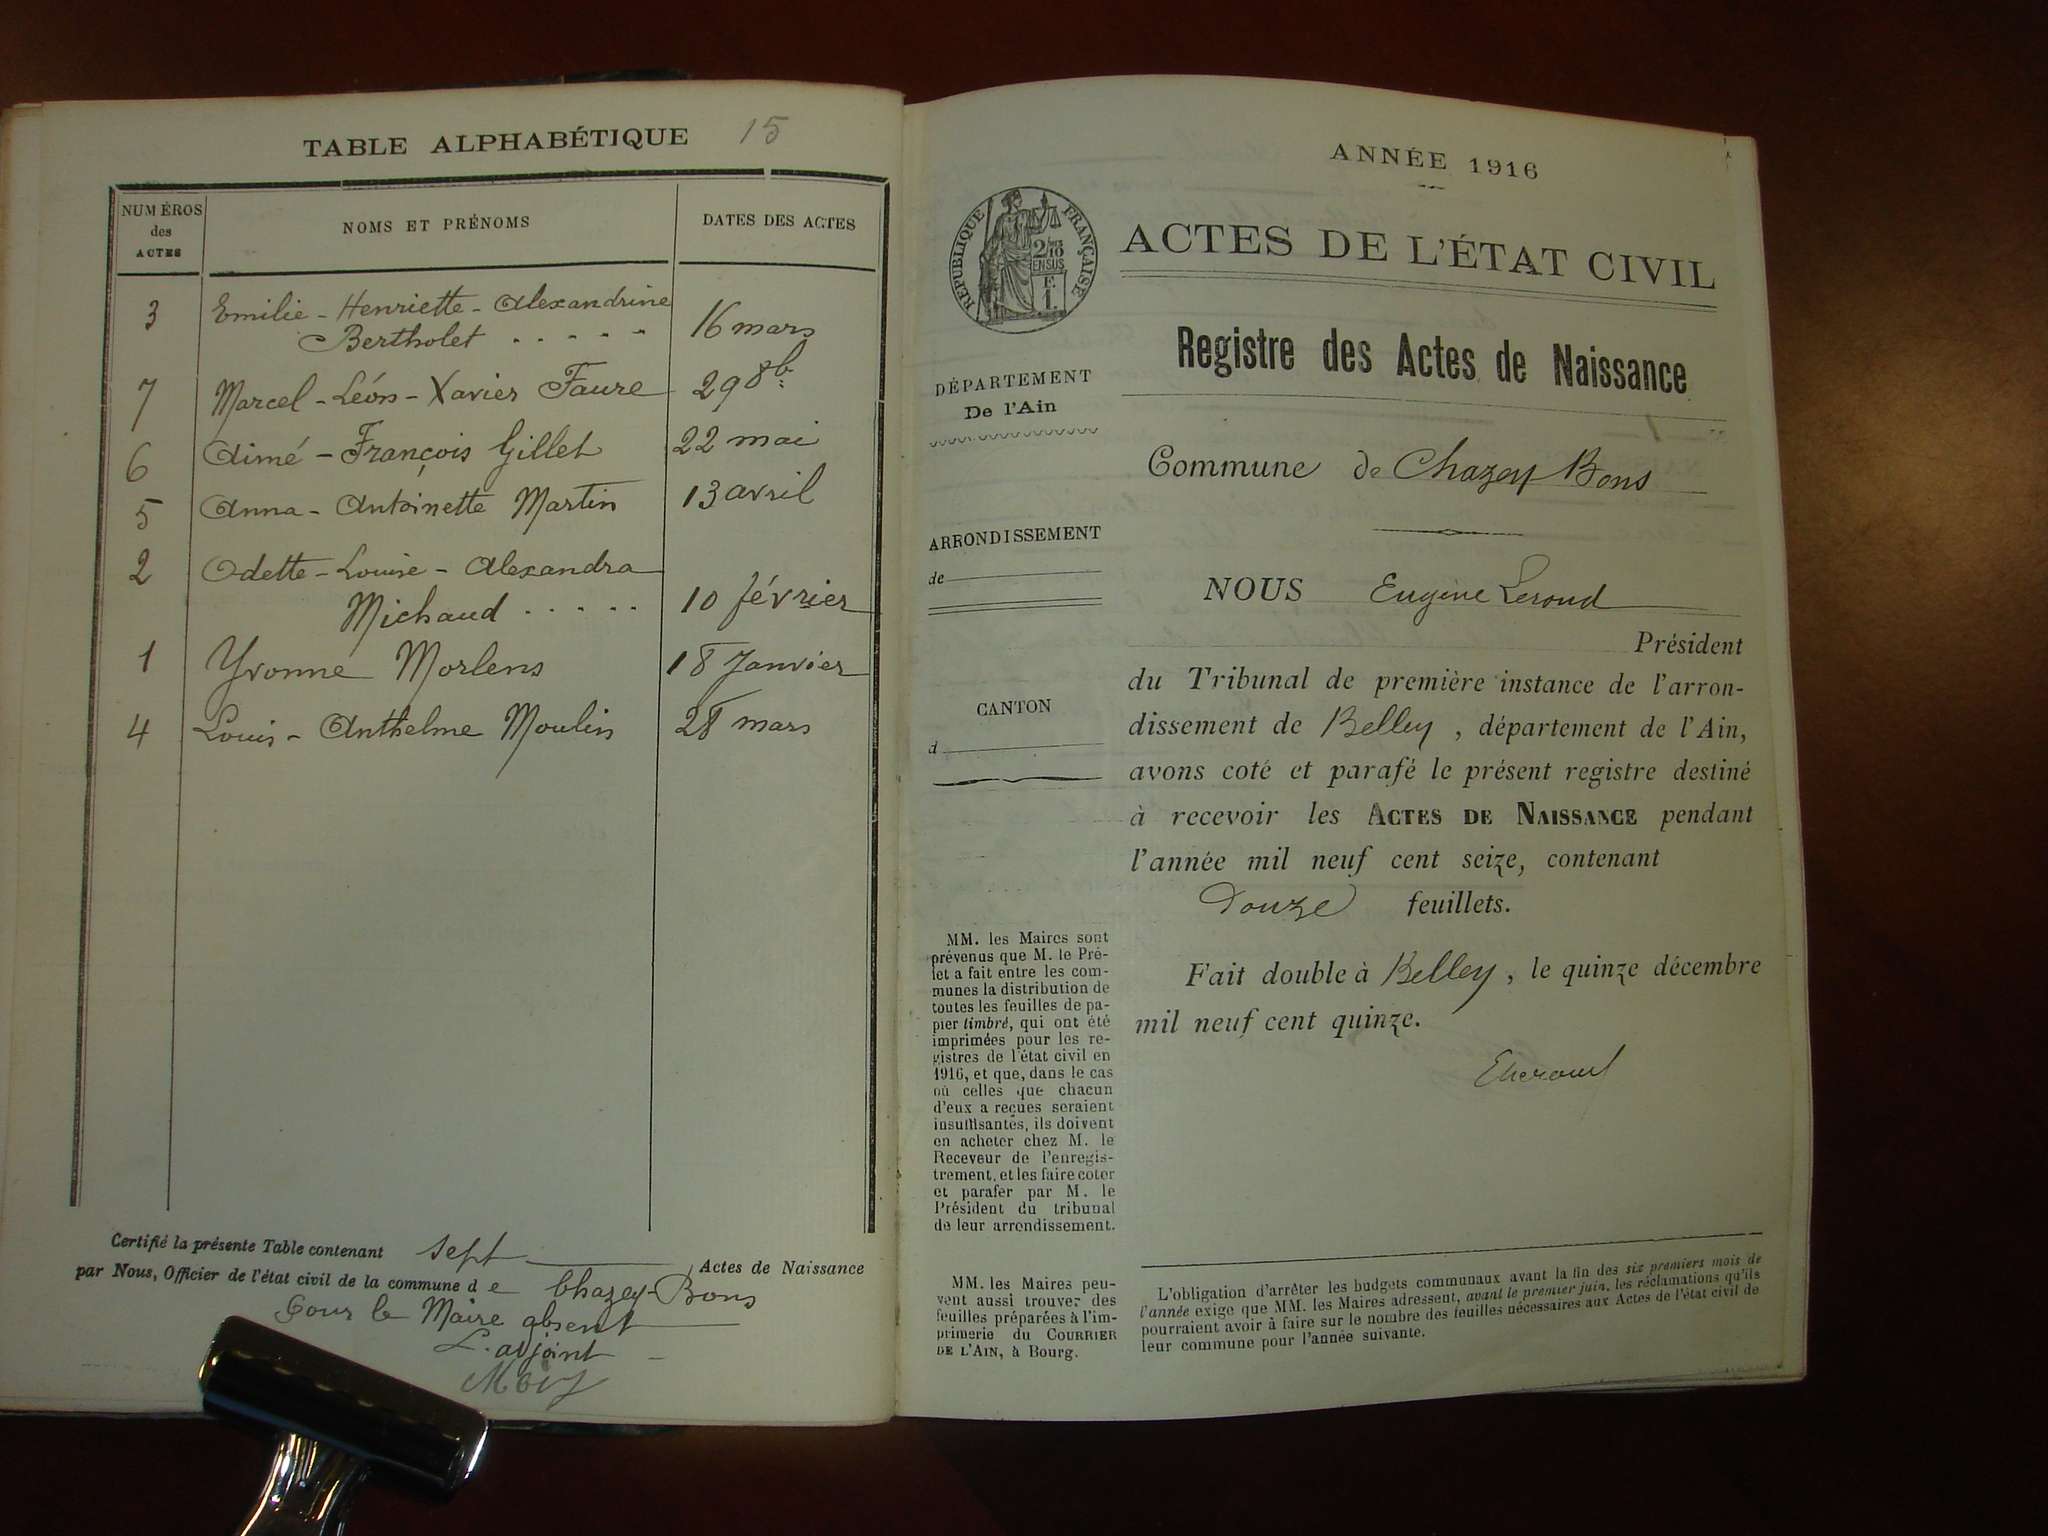 TABLE ALPHABÉTIQUE 15
NUMÉROS des ACTES
NOMS ET PRÉNOMS
DATES DES ACTES
3 Emilie-Henriette-Alexandrine
Bertholet . . . . . 16 mars
7 Marcel-Léon-Xavier Faure 29 8b.
6 Aimé-François Gillet 22 mai
5 Anna-Antoinette Martin 13 avril
2 Odette-Louise-Alexandra
Michaud . . . . . 10 février
1 Yvonne Morlens 18 Janvier
4 Louis-Anthelme Moulin 28 mars
Certifié la présente Table contenant sept Actes de Naissance
par Nous, Officier de l'état civil de la commune de Chazey-Bons
Pour le Maire absent
L'adjoint
ANNÉE 1916
RÉPUBLIQUE FRANÇAISE
2/10
EN SUS
F.
1.
ACTES DE L'ÉTAT CIVIL
Registre des Actes de Naissance
DÉPARTEMENT
De l'Ain
Commune de Chazey Bons
ARRONDISSEMENT
de
NOUS Eugène Leroud
Président
du Tribunal de première instance de l'arron-
dissement de Belley, département de l'Ain,
avons coté et parafé le présent registre destiné
à recevoir les ACTES DE NAISSANCE pendant
l'année mil neuf cent seize, contenant
Douze feuillets.
Fait double à Belley, le quinze décembre
mil neuf cent quinze.
CANTON
d
MM. les Maires sont
prévenus que M. le Pré-
fet a fait entre les com-
munes la distribution de
toutes les feuilles de pa-
pier timbré, qui ont été
imprimées pour les re-
gistres de l'état civil en
1916, et que, dans le cas
où celles que chacun
d'eux a reçues seraient
insuffisantes, ils doivent
en acheter chez M. le
Receveur de l'enregis-
trement, et les faire coter
et parafer par M. le
Président du tribunal
de leur arrondissement.
MM. les Maires peu-
vent aussi trouver des
feuilles préparées à l'im-
primerie du COURRIER
DE L'AIN, à Bourg.
L'obligation d'arrêter les budgets communaux avant la fin des six premiers mois de
l'année exige que MM. les Maires adressent, avant le premier juin, les réclamations qu'ils
pourraient avoir à faire sur le nombre des feuilles nécessaires aux Actes de l'état civil de
leur commune pour l'année suivante.